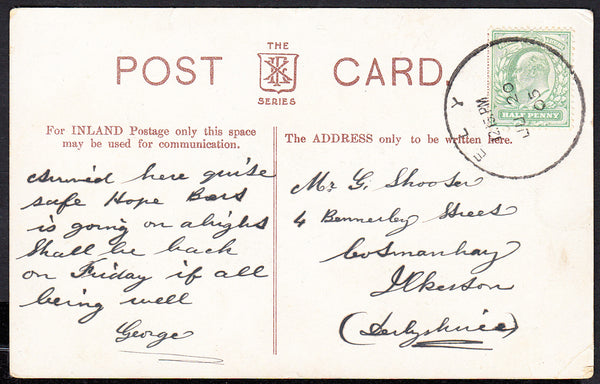 THE
POST CARD.
SERIES
HALFPENNY
ELY
12.15 PM
20
05
For INLAND Postage only this space
may be used for communication.
The ADDRESS only to be written here.
Arrived here quite
safe Hope
is going on alright
Shall be back
on Friday if all
being well
George
Mr G. Shooter
4 Bennerley Street
Cotmanhay
Ilkeston
(Derbyshire)